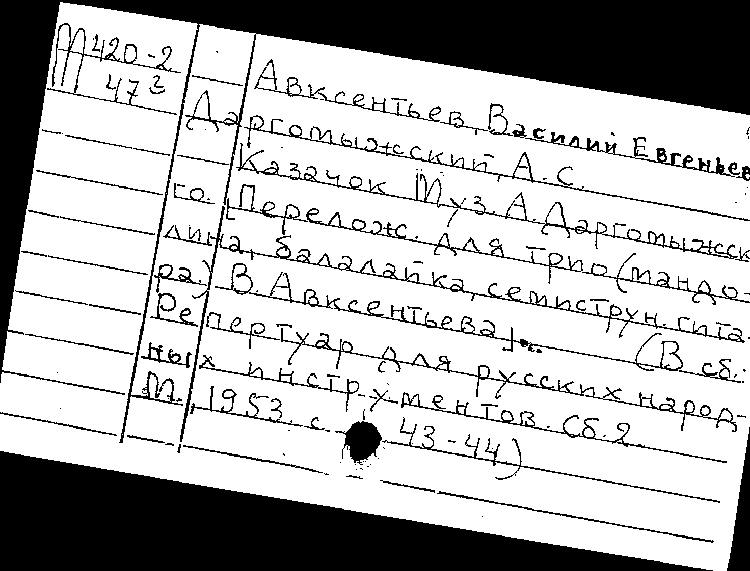 М 420-2
47³
Авксентьев, Василий Евгеньев
Даргомыжский, А.С.
Казачок Муз. А. Даргомыжск
го. [Перелож. для трио (мандо-
лина, балалайка, семиструн. гита
ра) В. Авксентьева]. (В сб.:
Репертуар для русских народ-
ных инструментов. Сб. 2.
М., 1953. с. 43-44)